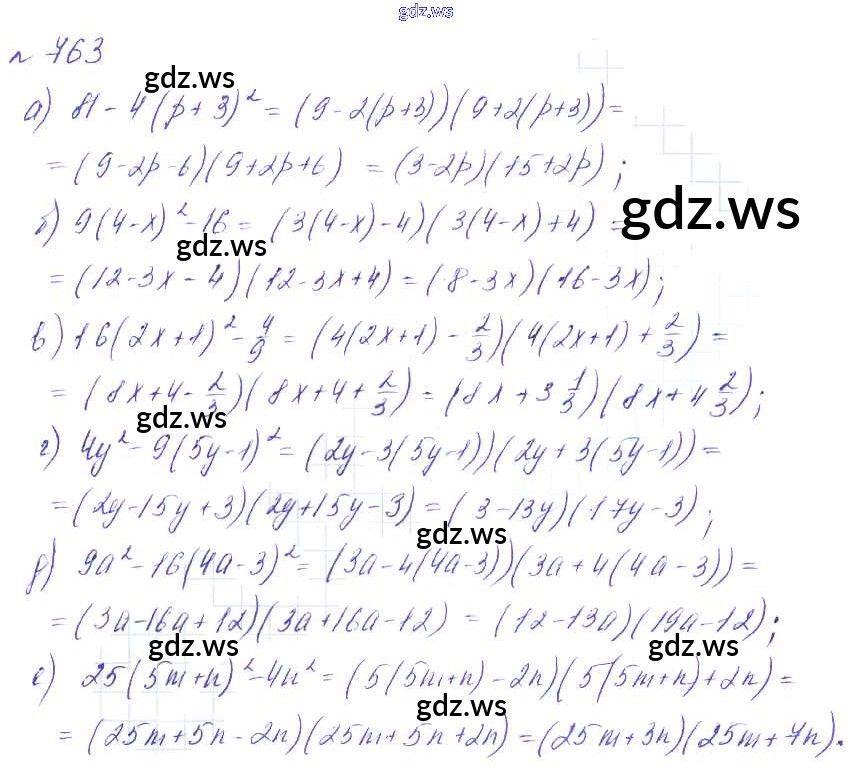 gdz.ws
№ 763
gdz.ws
а) 81 - 4(p+3)² = (9-2(p+3))(9+2(p+3)) =
= (9-2p-6)(9+2p+6) = (3-2p)(15+2p);
gdz.ws
б) 9(4-x)² - 16 = (3(4-x)-4)(3(4-x)+4) =
gdz.ws
= (12-3x-4)(12-3x+4) = (8-3x)(16-3x);
в) 16(2x+1)² - 4/9 = (4(2x+1) - 2/3)(4(2x+1) + 2/3) =
= (8x+4-2/3)(8x+4+2/3) = (8x+3 1/3)(8x+4 2/3);
gdz.ws
г) 4y² - 9(5y-1)² = (2y-3(5y-1))(2y+3(5y-1)) =
= (2y-15y+3)(2y+15y-3) = (3-13y)(17y-3);
gdz.ws
д) 9a² - 16(4a-3)² = (3a-4(4a-3))(3a+4(4a-3)) =
= (3a-16a+12)(3a+16a-12) = (12-13a)(19a-12);
gdz.ws gdz.ws
е) 25(5m+n)² - 4n² = (5(5m+n)-2n)(5(5m+n)+2n) =
gdz.ws
= (25m+5n-2n)(25m+5n+2n) = (25m+3n)(25m+7n).